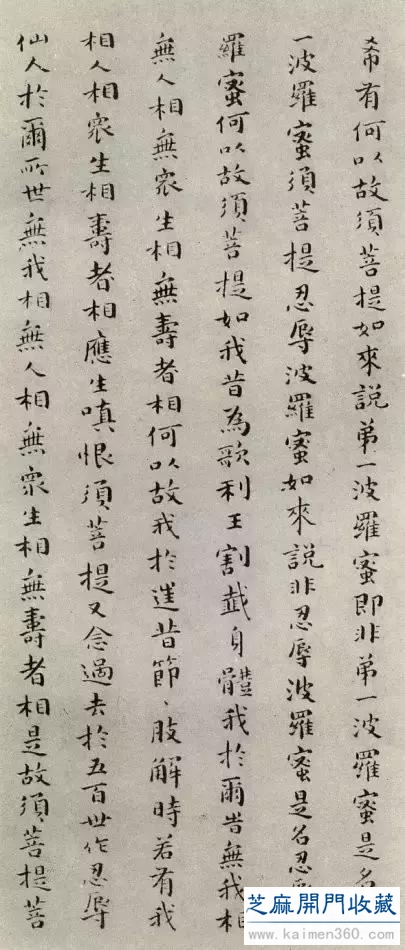 希有何以故須菩提如來說弟一波羅蜜即非弟一波羅蜜是名
一波羅蜜須菩提忍辱波羅蜜如來說非忍辱波羅蜜是名忍
羅蜜何以故須菩提如我昔為歌利王割截身體我於爾旹無我相
無人相無衆生相無壽者相何以故我於往昔節、肢解時若有我
相人相衆生相壽者相應生嗔恨須菩提又念過去於五百世作忍辱
仙人於爾所世無我相無人相無衆生相無壽者相是故須菩提菩
芝麻開門收藏
www.kaimen360.com